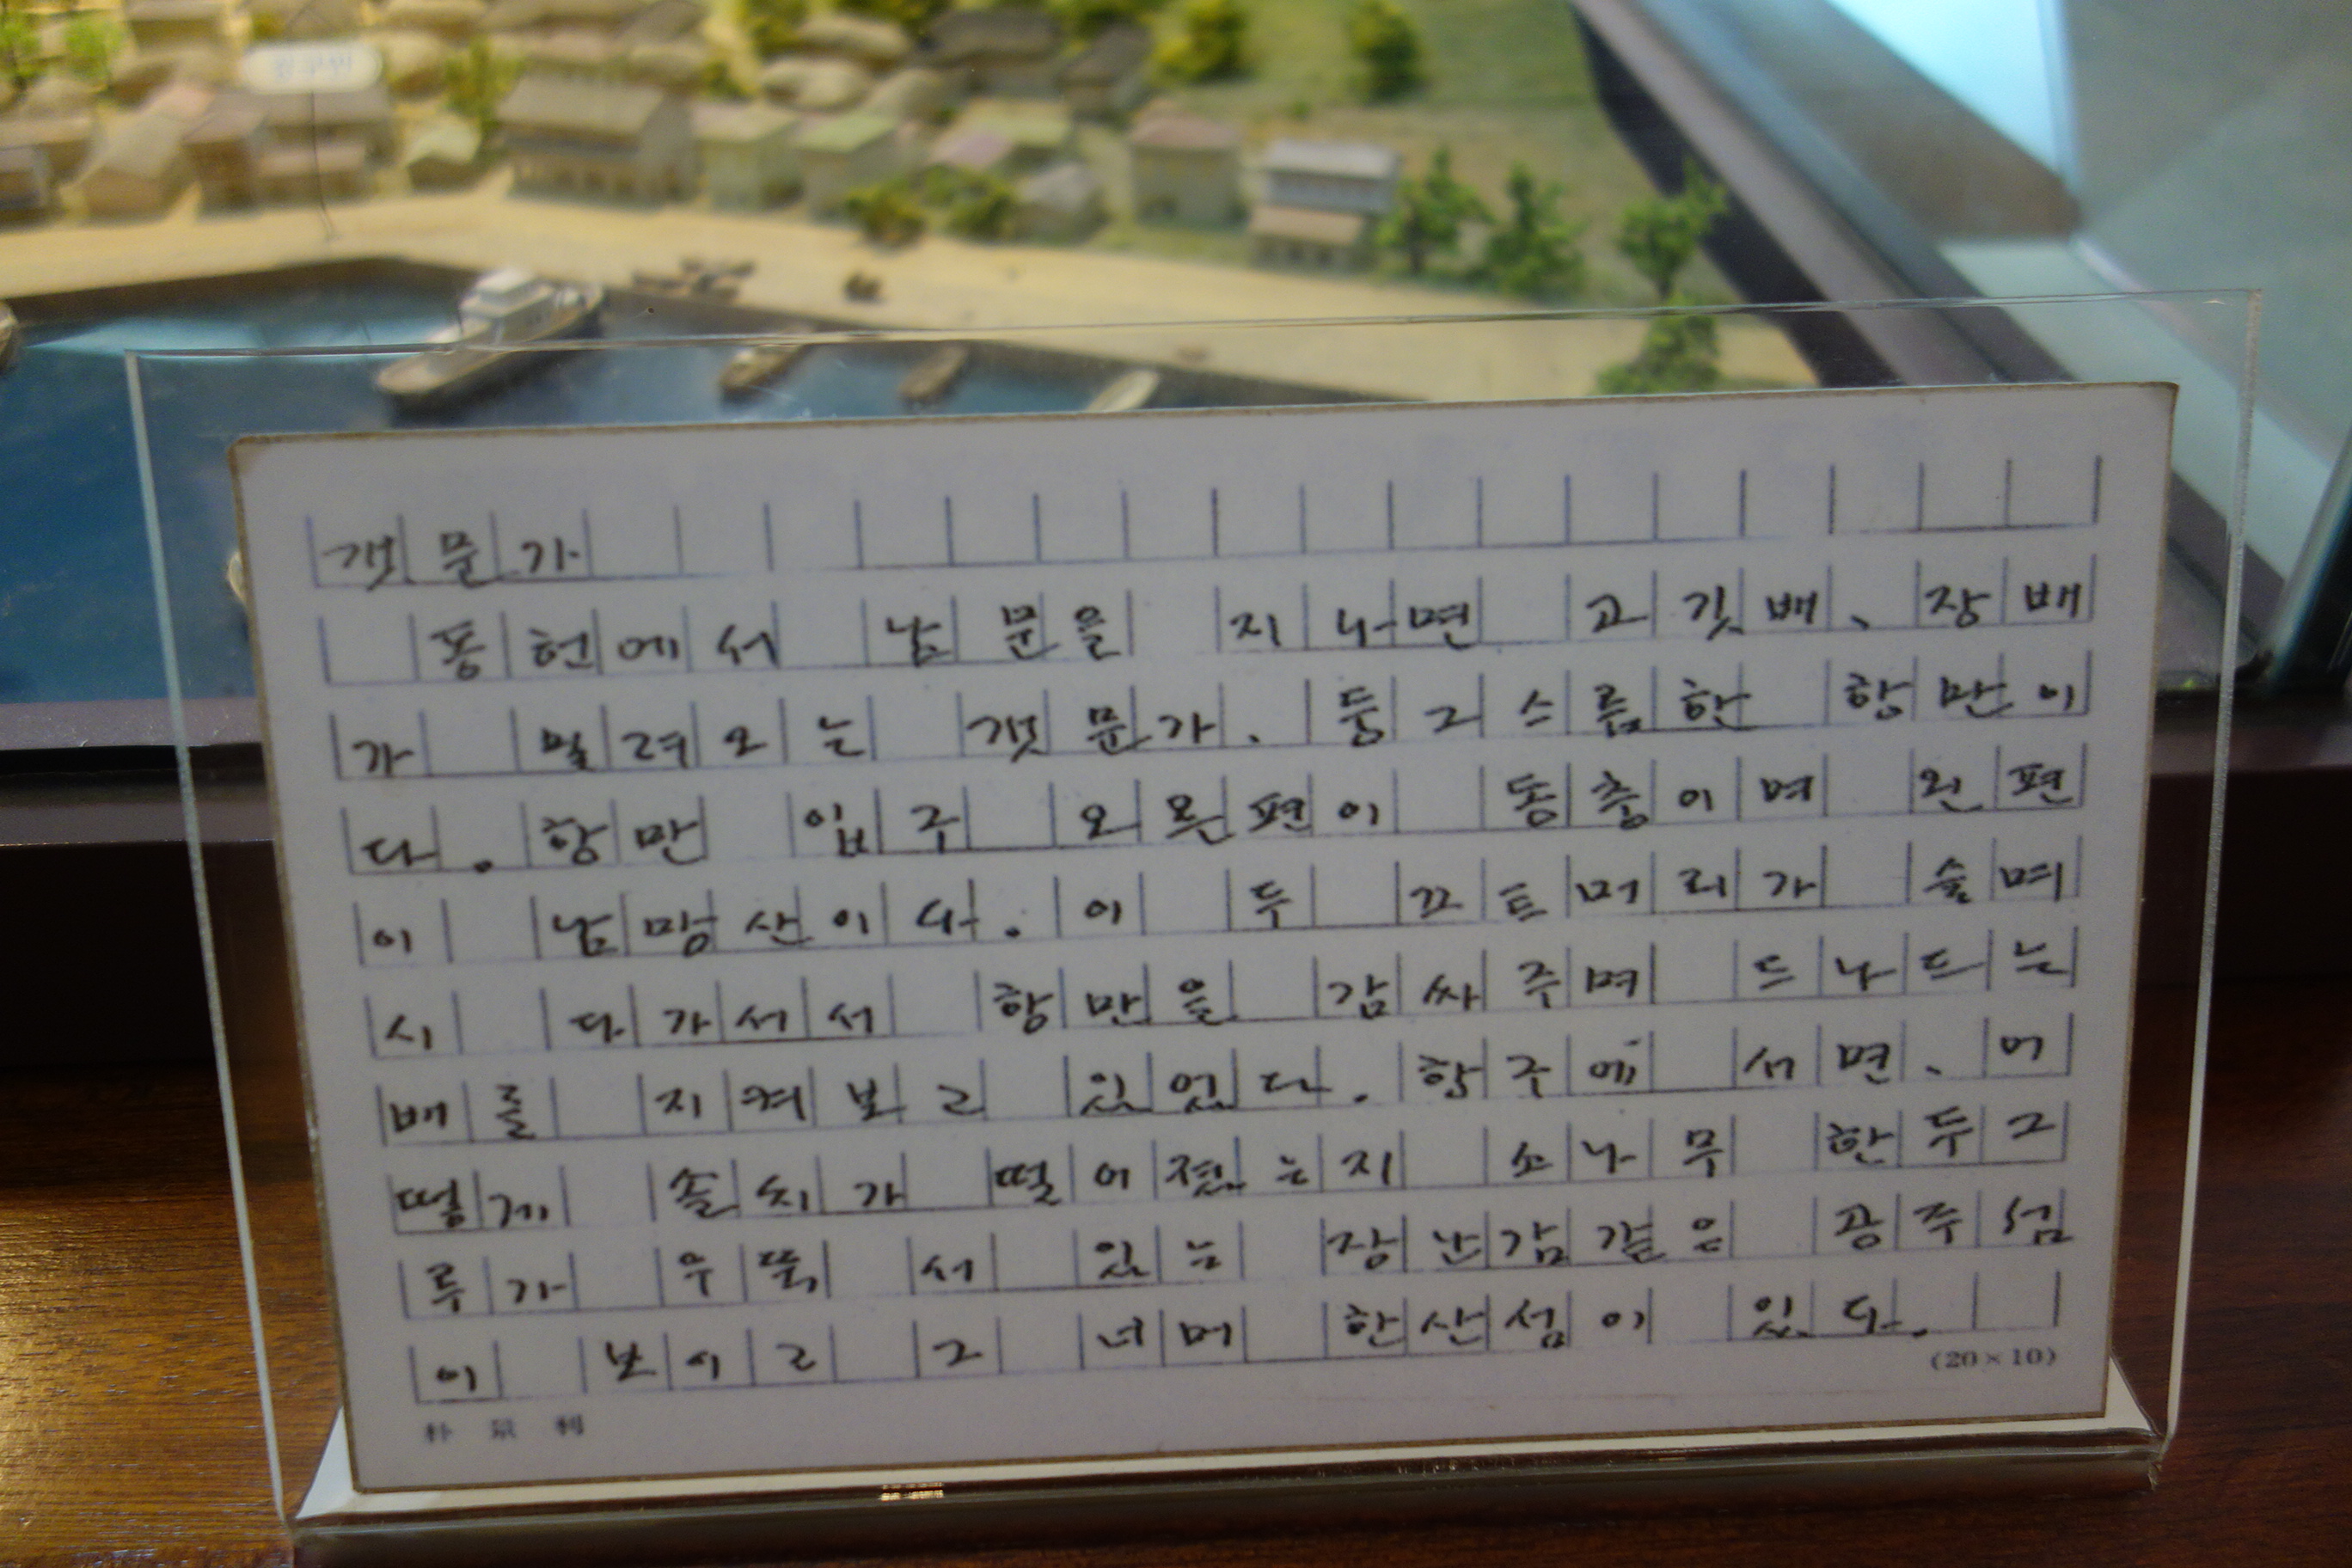 갯문가
동헌에서 남문을 지나면 고깃배、장배
가 밀려오는 갯문가. 둥그스름한 항만이
다. 항만 입구 오른편이 동충이며 왼편
이 남망산이다. 이 두 끄트머리가 슬며
시 다가서서 항만을 감싸주며 드나드는
배를 지켜보고 있었다. 항구에 서면、어
떻게 솔씨가 떨어졌는지 소나무 한두그
루가 우뚝 서 있는 장난감같은 공주섬
이 보이고 그 너머 한산섬이 있다.
(20×10)
朴 景 利